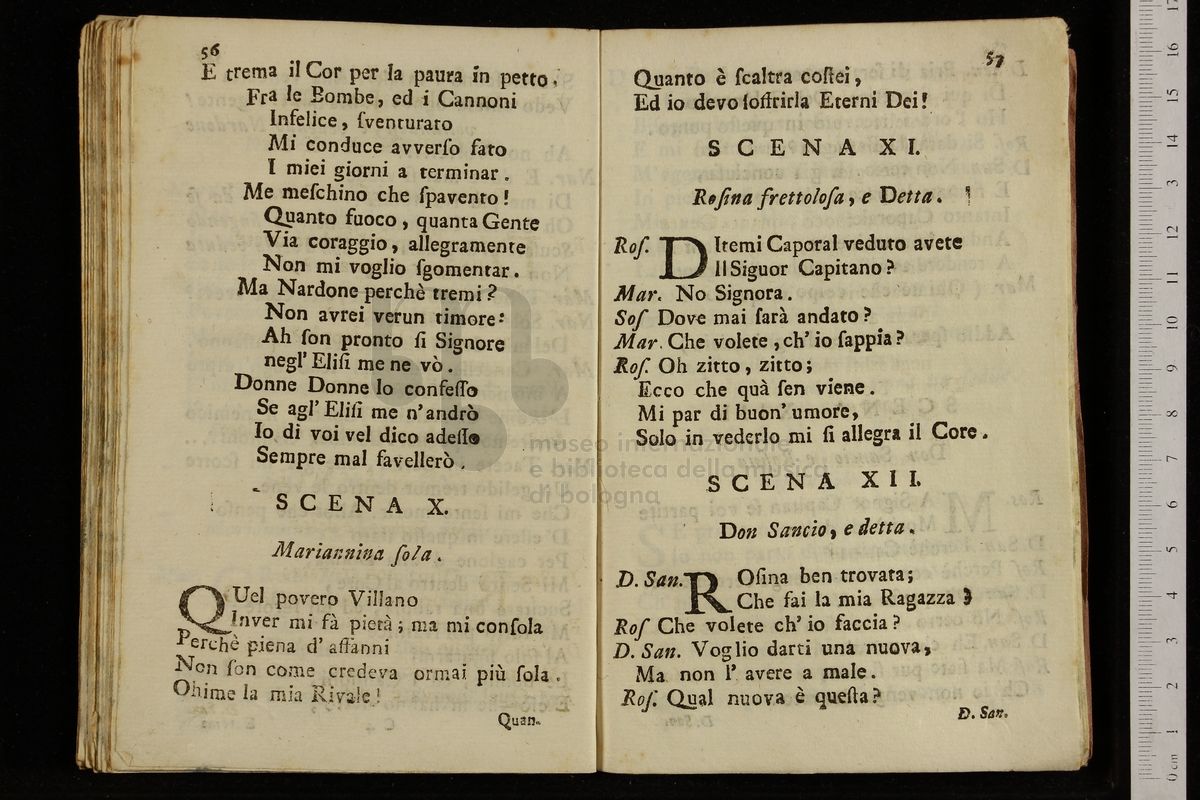 56
E trema il Cor per la paura in petto.
Fra le Bombe, ed i Cannoni
Infelice, ſventurato
Mi conduce avverſo fato
I miei giorni a terminar.
Me meſchino che ſpavento!
Quanto fuoco, quanta Gente
Via coraggio, allegramente
Non mi voglio ſgomentar.
Ma Nardone perchè tremi?
Non avrei verun timore:
Ah ſon pronto ſi Signore
negl' Eliſi me ne vò.
Donne Donne lo confeſſo
Se agl' Eliſi me n' andrò
Io di voi vel dico adeſſo
Sempre mal favellerò.
SCENA X.
Mariannina ſola.
QUel povero Villano
Inver mi fà pietà; ma mi conſola
Perchè piena d' affanni
Non ſon come credeva ormai più ſola.
Ohime la mia Rivale!
Quan-
57
Quanto è ſcaltra coſtei,
Ed io devo ſoffrirla Eterni Dei!
SCENA XI.
Roſina frettoloſa, e Detta.
Roſ. DItemi Caporal veduto avete
Il Siguor Capitano?
Mar. No Signora.
Soſ Dove mai ſarà andato?
Mar. Che volete, ch' io ſappia?
Roſ. Oh zitto, zitto;
Ecco che quà ſen viene.
Mi par di buon' umore,
Solo in vederlo mi ſi allegra il Core.
SCENA XII.
Don Sancio, e detta.
D. San. ROſina ben trovata;
Che fai la mia Ragazza?
Roſ Che volete ch' io faccia?
D. San. Voglio darti una nuova,
Ma non l' avere a male.
Roſ. Qual nuova è queſta?
D. San.
museo internazionale
e biblioteca della musica
di bologna
0 cm 1 2 3 4 5 6 7 8 9 10 11 12 13 14 15 16 17